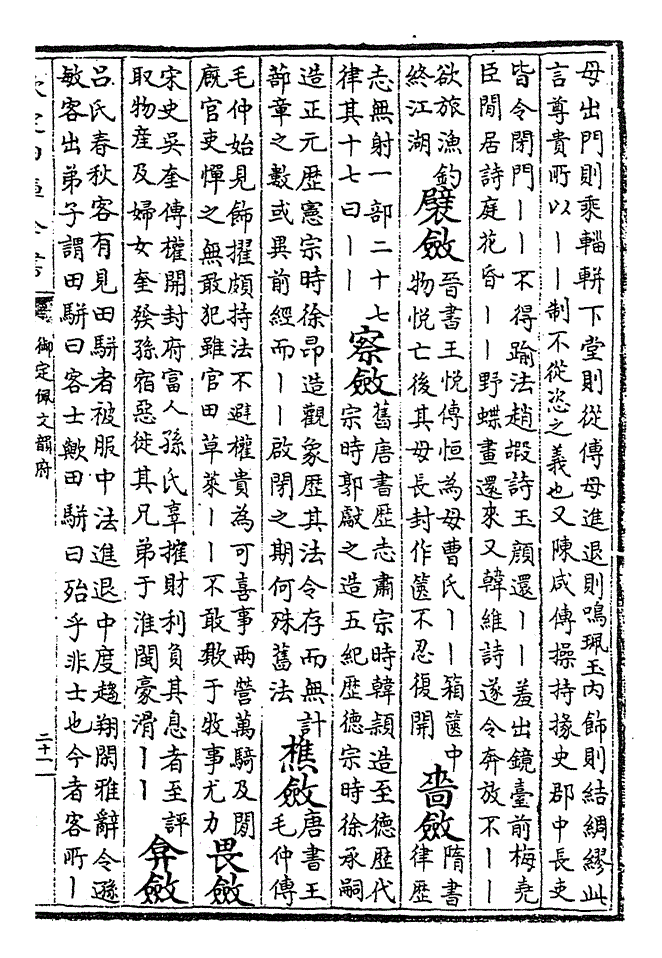 母出門則乘輜軿下堂則從傅母進退則鳴珮玉内飾則結綢繆此
言尊貴所以丨丨制不從恣之義也又陳咸傳操持掾史郡中長吏
皆令閉門丨丨不得踰法趙嘏詩玉顔還丨丨羞出鏡臺前梅堯
臣閒居詩庭花昏丨丨野蝶晝還來又韓維詩遂令奔放不丨丨
欲旅漁釣
終江湖
襞斂
晉書王悦傳恒為母曹氏丨丨箱篋中
物悦亡後其母長封作篋不忍復開
嗇斂
隋書
律歷
志無射一部二十七
律其十七曰丨丨
察斂
舊唐書歷志肅宗時韓穎造至德歷代
宗時郭獻之造五紀歷德宗時徐承嗣
造正元歷憲宗時徐昂造觀象歷其法令存而無計
蔀章之數或異前經而丨丨啟閉之期何殊舊法
憔斂
唐書王
毛仲傳
毛仲始見飾擢頗持法不避權貴為可喜事兩營萬騎及閒
廐官吏憚之無敢犯雖官田草萊丨丨不敢欺于牧事尤力
畏斂
宋史吳奎傳權開封府富人孫氏辜搉財利負其息者至評
取物産及婦女奎發孫宿惡徙其兄弟于淮閩豪滑丨丨
弇斂
吕氏春秋客有見田駢者被服中法進退中度趨翔閑雅辭令遜
敏客出弟子謂田駢曰客士歟田駢曰殆乎非士也今者客所丨
御定佩文韻府
二十一